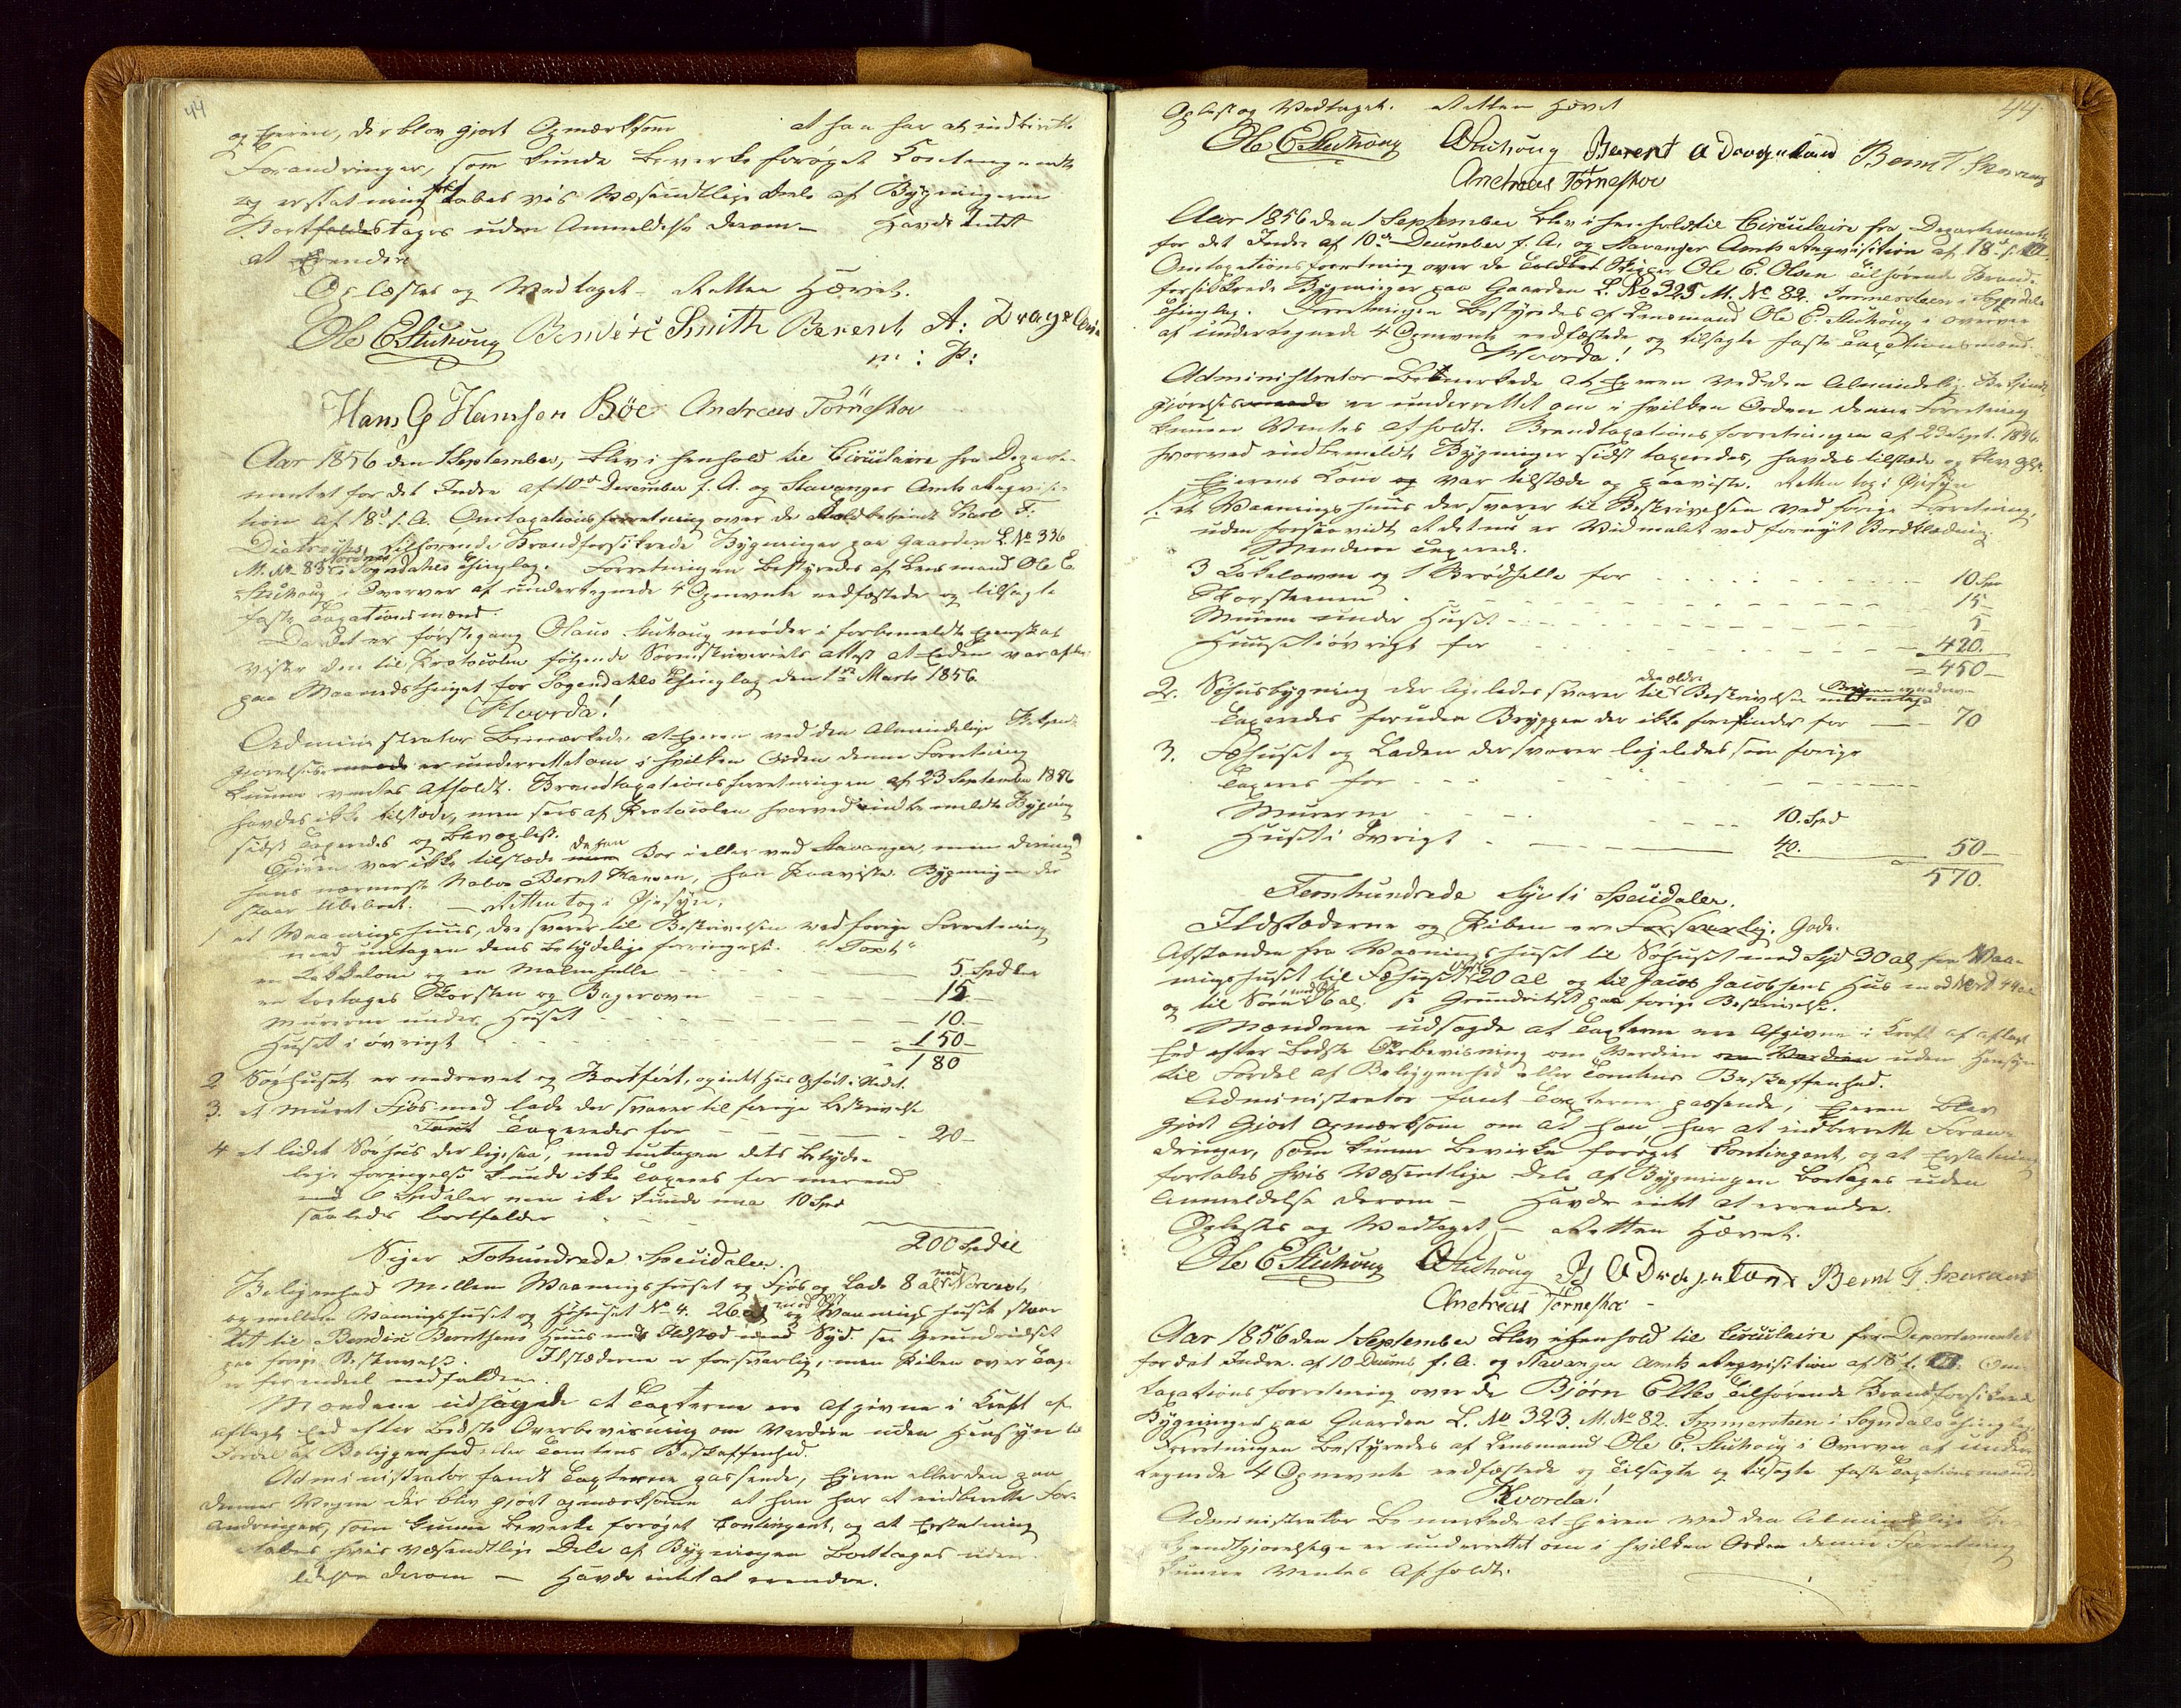 44
og Eieren, der blev gjort Opmærksom at han har at indberette
Forandringer, som kunde bevirke forøget Contingendt
og erstatning tabes hvis Væsendtlige dele af Bygningerne
Bortfoldestages uden Anmeldelse derom – Havde Intet
at erendre
Oplæstes og Vedtaget – Retten Hævet.
Ole E Stuhoug Bendix Smith Berent A: Drageland
m: P:
Hans G Hansen Böe Andreas Törneskov
Aar 1856 den 1 September, blev i henhold til Circulaire fra Departe-
mentet for det Indre af 10de December f. A. og Stavanger Amts Requisi-
tion af 18d s. A. Omtaxationsforretning over de Toldbetjent Carl F.
tilhørende Brandforsikrede Bygninger paa Gaarden L. No 336
M. No 83 i Sogndahls Thinglag. Forretningen bestyredes af Lensmand Ole E.
Stuhoug i Overvær af undertegnede 4 Opnevnte eedfæstede og tilsagte
faste Taxationsmænd.
Da det er førstegang Olaus Stuhoug møder i forbemeldte Egenskab
vistes den til Protocolen følgende Sorenskriveriets attest at Eeden var aflagt
paa Maanedsthinget for Sogendahls Thinglag den 1ste Marts 1856.
Hvorda!
Administrator Bemærkede, at Eieren ved den Almindelige Bekjendt-
gjørelses maade er underrettet om i hvilken Orden denne Forretning
kunne ventes afholdt. Brandtaxationsforretningen af 23 September 1846
havdes ikke tilstede, men sees af Protocolen hvorved indbemeldte Bygning
sidst Taxeredes og blev oplæst.
Eieren var ikke tilstæde da han Boe i eller ved Stavanger, men derimod
hans nærmeste Nabo Bernt Hansen, han Paaviste Bygningen der
staar Ubeboet. – Retten tog i Øjesyn:
1 et Vaaningshuus, der svarer til Beskrivelsen ved forige Forretning
med undtagen dens betydelige forringelse. "Taxt"
en Kakkelovn og en Malmhelle – 5 Spdlr
en toetages Skorsten og Bagerovn – 15
Murene under Huset – 10 –
Huset i øvrigt – 150 –
180
2 Søehuset er nedrevet og Bortført, og intet Hus Opført i Stedet.
3. et Muret Fjøs med lade der svarer til forige beskrivelse
Taxt Taxeredes for – 20 –
4 et lidet Søehus der ligesaa, med undtagen dets betyde-
lige forringelse kunde ikke Taxeres for mere end
6 Spdaler men ikke kunde naa 10 Spd
saaledes bortfalder
200 Spdlr
Siger Tohundrede Speciedaler.
Beligenhed Mellem Vaaningshuset og Fjøs og Lade 8 al mod Norvest
og mellem Vaaningshuset og Søehuset No 4. 26 al Vaaningshuset staar
tæt til Bendix Berntsens Huus med Ildsted mod Syd. see Grundridset
paa forige Beskrivelse. Ilstæderne er forsvarlig, men Piben over Taget
er for endeel nedfalden.
Mændene udsagde at Taxterne ere afgivne i Kraft af
aflagt Eed efter bedste Overbeviisning om Værdien uden Hensyn til
Fordel af Beliggenhed eller Tomtens Beskaffenhed.
Administrator fandt Taxterne passende, Eieren eller den paa
dennes Vegne der blev gjort opmærksom at han har at indberette For-
andringer, som kunne bevirke forøget Contingent, og at Erstatning
tabes hvis væsendtlige Dele af Bygningen borttages uden
derom – Havde intet at erendre.
44.
Oplæst og Vedtaget. Retten Hævet
Ole E Stuhoug O Stuhoug Berent A Drageland Bernt T.
Andreas Törneskov
Aar 1856 den 1 September blev i henhold til Circulaire fra Departementet
for det Indre af 10de December f. A. og Stavanger Amts Requisition af 18d s. A.
Omtaxationsforretning over de Skipper Ole E. Olsen Tilhørende Brand-
forsikrede Bygninger paa Gaarden L. No 325 M. No 82. Immersteen i Sogndals
Thinglag. Forretningen Bestyredes af Lensmand Ole E. Stuhoug i overvær
af undertegnede 4 Opnevnte eedfæstede og tilsagte faste Taxationsmænd.
Hvorda!
Administrator Bemærkede at Eieren ved den Almindelig Bekjendt-
gjørelses maade er underrettet om i hvilken Orden denne Forretning
kunne Ventes afholdt. Brandtaxationsforretningen af 23 Sept. 1846
hvorved indbemeldte Bygninger sidst taxeredes, havdes tilstede og blev oplæst.
Eierens Kone og var tilstæde og paaviste. Retten tog i Øjesyn
1. et Vaaningshuus der svarer til Beskrivelsen ved forige Forretning,
uden forsaavidt at det nu er Vidmalet ved fornyt Bordklædning
Mændene Taxerede.
3 Kakelovne og 1 Brødhelle for – 10 Spd
Skorstenen – 15 –
Murene under Huset – 5
Huuset i øvrigt for – 420.
450 –
2. Søhusbygning der ligeledes svarer til den ældre Beskrivelse
Taxeredes foruden Bryggen der ikke forefindes for – 70
3. Fæhuset og Laden der svarer ligeledes som forige
Taxeres for
Murerne – 10. Spd
Huset i Øvrigt – 40. 50 –
570.
Femhundrede Syvti Speciedaler.
Ildstæderne og Piben ere Forsvarlig. Gode.
Afstanden fra Vaaningshuset til Søhuset mod Syd 30 al fra Vaa-
ningshuset til Fæhuset 20 al og til Jacob Jacobsens Hus mod Nord 44 al
og til 6 al. se Grundridset paa forige Beskrivelse.
Mændene udsagde at Taxterne ere Afgivne i Kraft af aflagt
Eed efter bedste Overbeviisning om Værdien om Værdien uden Hensyn
til Fordel af Beliggenhed eller Tomtens Beskaffenhed.
Administrator fant Taxterne passende, Eieren blev
gjort Gjort opmærksom om at han har at indberette Foran-
dringer, som kunne bevirke forøget Contingent, og at Erstatning
fortabes hvis Væsentlige Dele af Bygningen bortages uden
Anmeldelse derom – Havde intet at errendre.
Oplæstes og Vedtaget – Retten Hævet.
Ole E Stuhoug O Stuhoug B A Drageland Bernt T.
Andreas Törneskov –
Aar 1856 den 1 September blev i henhold til Circulaire fra Departementet
for det Indre. af 10 Decemb f. A. og Stavanger Amts Requisition af 18 s. Om-
taxationsforretning over de Bjørn Elles Tilhørende Brandforsikrede
Bygninger paa Gaarden L. No 323. M. No 82. Immersteen i Sogndals Thinglag
Forretningen Bestyredes af Lensmand Ole E. Stuhoug i Overvær af under-
tegnede 4 Opnevnte eedfæstede og Tilsagte og tilsagte faste Taxationsmænd.
Hvorda!
Administrator Bemærkede at Eieren ved den Almindelige Be-
kjendtgjørelse er underrettet om i hvilken Orden denne Forretning
kunne Ventes Afholdt.